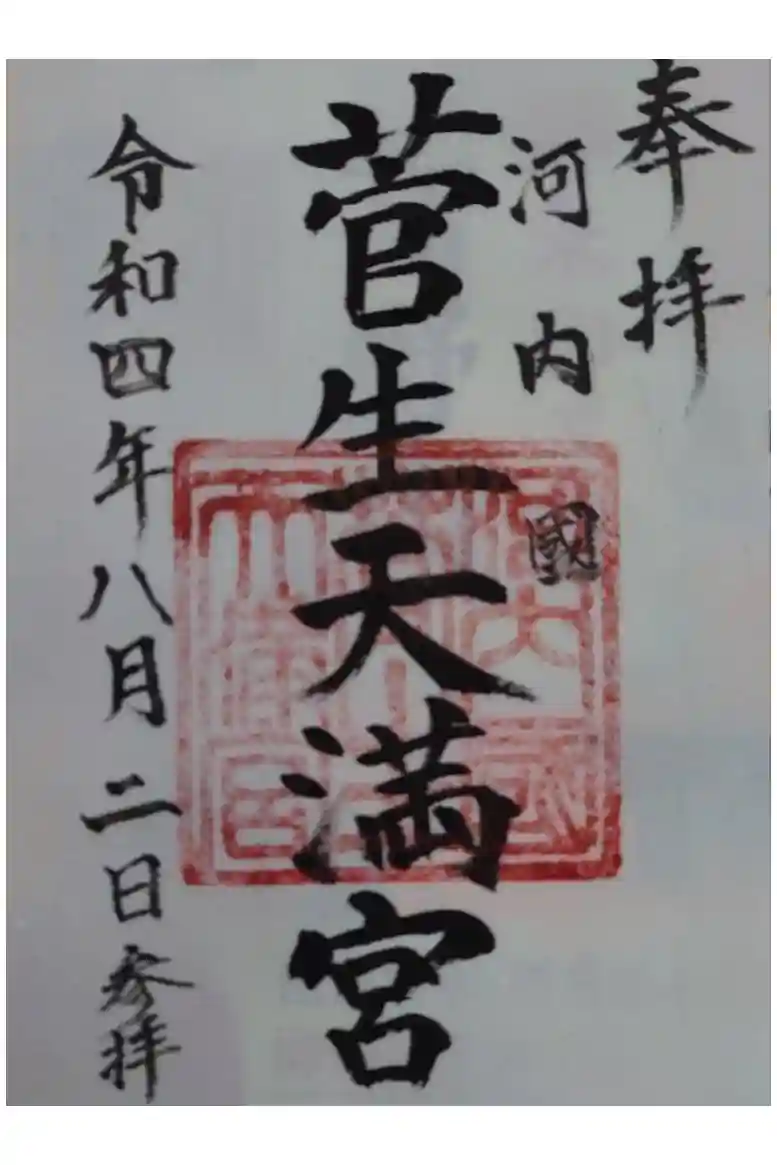 奉拝
河内國
菅生天満宮
令和四年八月二日参拝